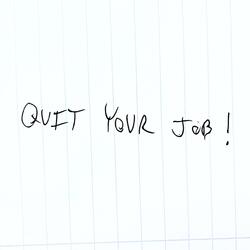 QUIT YOUR JOB!